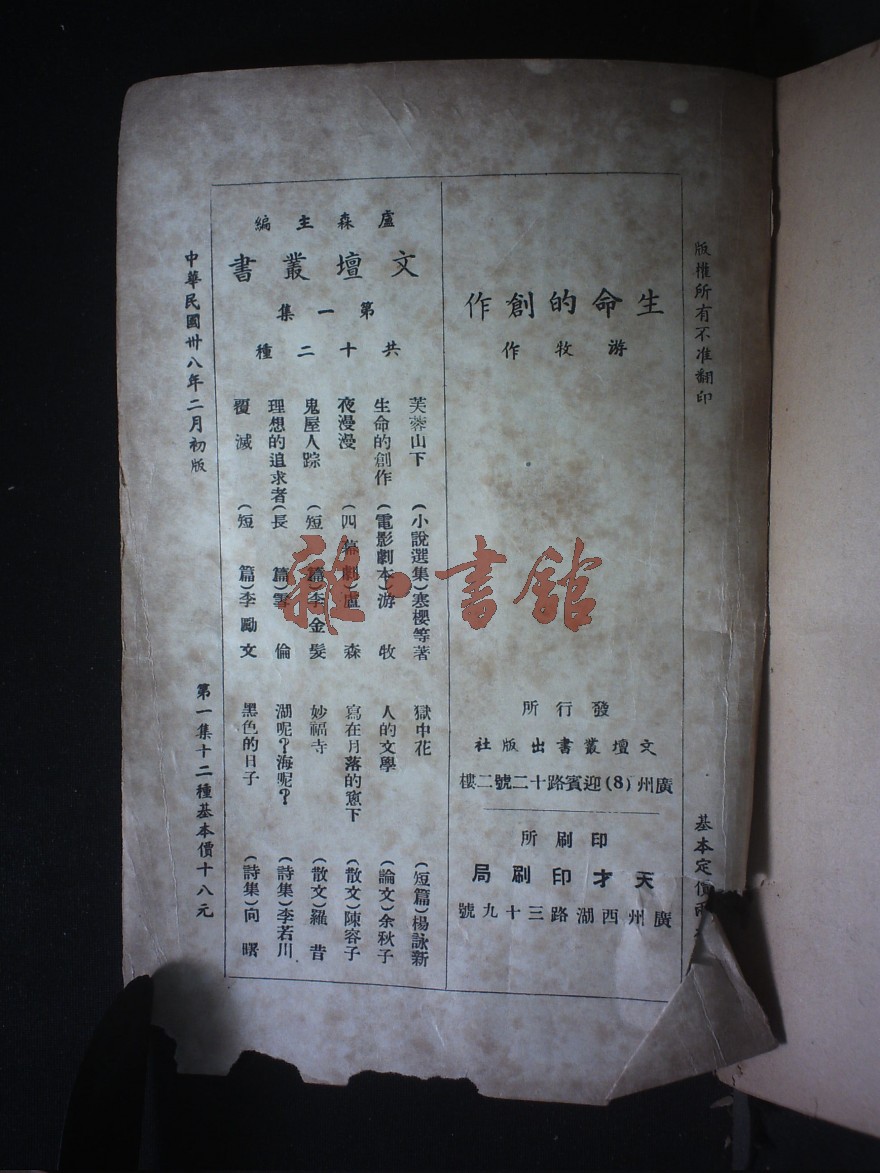 版權所有不准翻印
基本定價兩
生命的創作
游牧作
發行所
文壇叢書出版社
廣州(8)迎賓路十二號二樓
印刷所
天才印刷局
廣州西湖路三十九號
盧森主編
文壇叢書
第一集
共十二種
芙蓉山下(小說選集)寒櫻等著
生命的創作(電影劇本)游牧
夜漫漫(四幕劇)盧森
鬼屋人踪(短篇)李金髮
理想的追求者(長篇)雩倫
覆滅(短篇)李勵文
獄中花(短篇)楊詠新
人的文學(論文)余秋子
寫在月落的窻下(散文)陳容子
妙福寺(散文)羅昔
湖呢?海呢?(詩集)李若川
黑色的日子(詩集)向曙
中華民國卅八年二月初版
第一集十二種基本價十八元
雜·書館